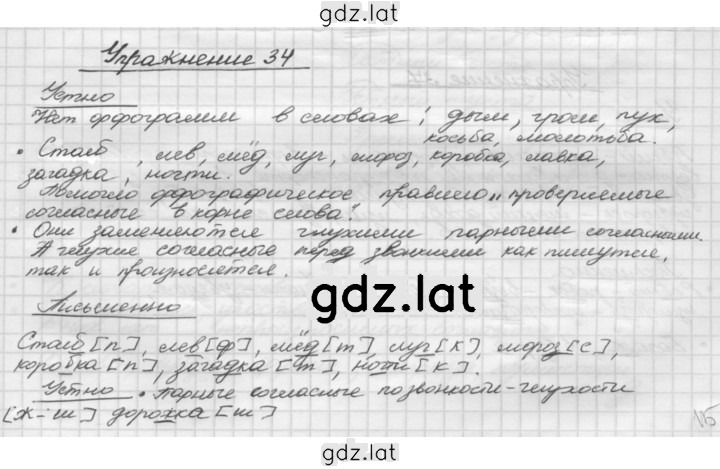 gdz.lat
Упражнение 34
Устно
Нет орфограмм в словах: дым, гром, пух,
косьба, молотьба.
• Столб, лев, мёд, луг, мороз, коробка, лавка,
загадка, ногти.
Помогло орфографическое правило "проверяемые
согласные в корне слова".
• Они заменяются глухими парными согласными.
А глухие согласные перед звонкими как пишутся,
так и произносятся.
gdz.lat
Письменно
Столб [п], лев [ф], мёд [т], луг [к], мороз [с],
коробка [п], загадка [т], ногти [к].
Устно • Парные согласные по звонкости-глухости
[ж-ш] дорожка [ш]
gdz.lat